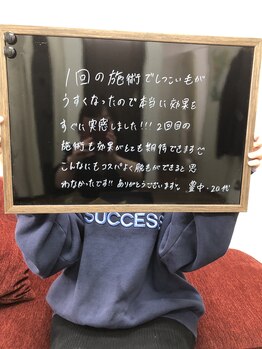 1回の施術でしつこい毛が
うすくなったので本当に効果を
すぐに実感しました!!!2回目の
施術も効果がとても期待できます
こんなにもコスパよく脱毛ができると思
わなかったです!!ありがとうございます。豊中・20代
SUCCESS